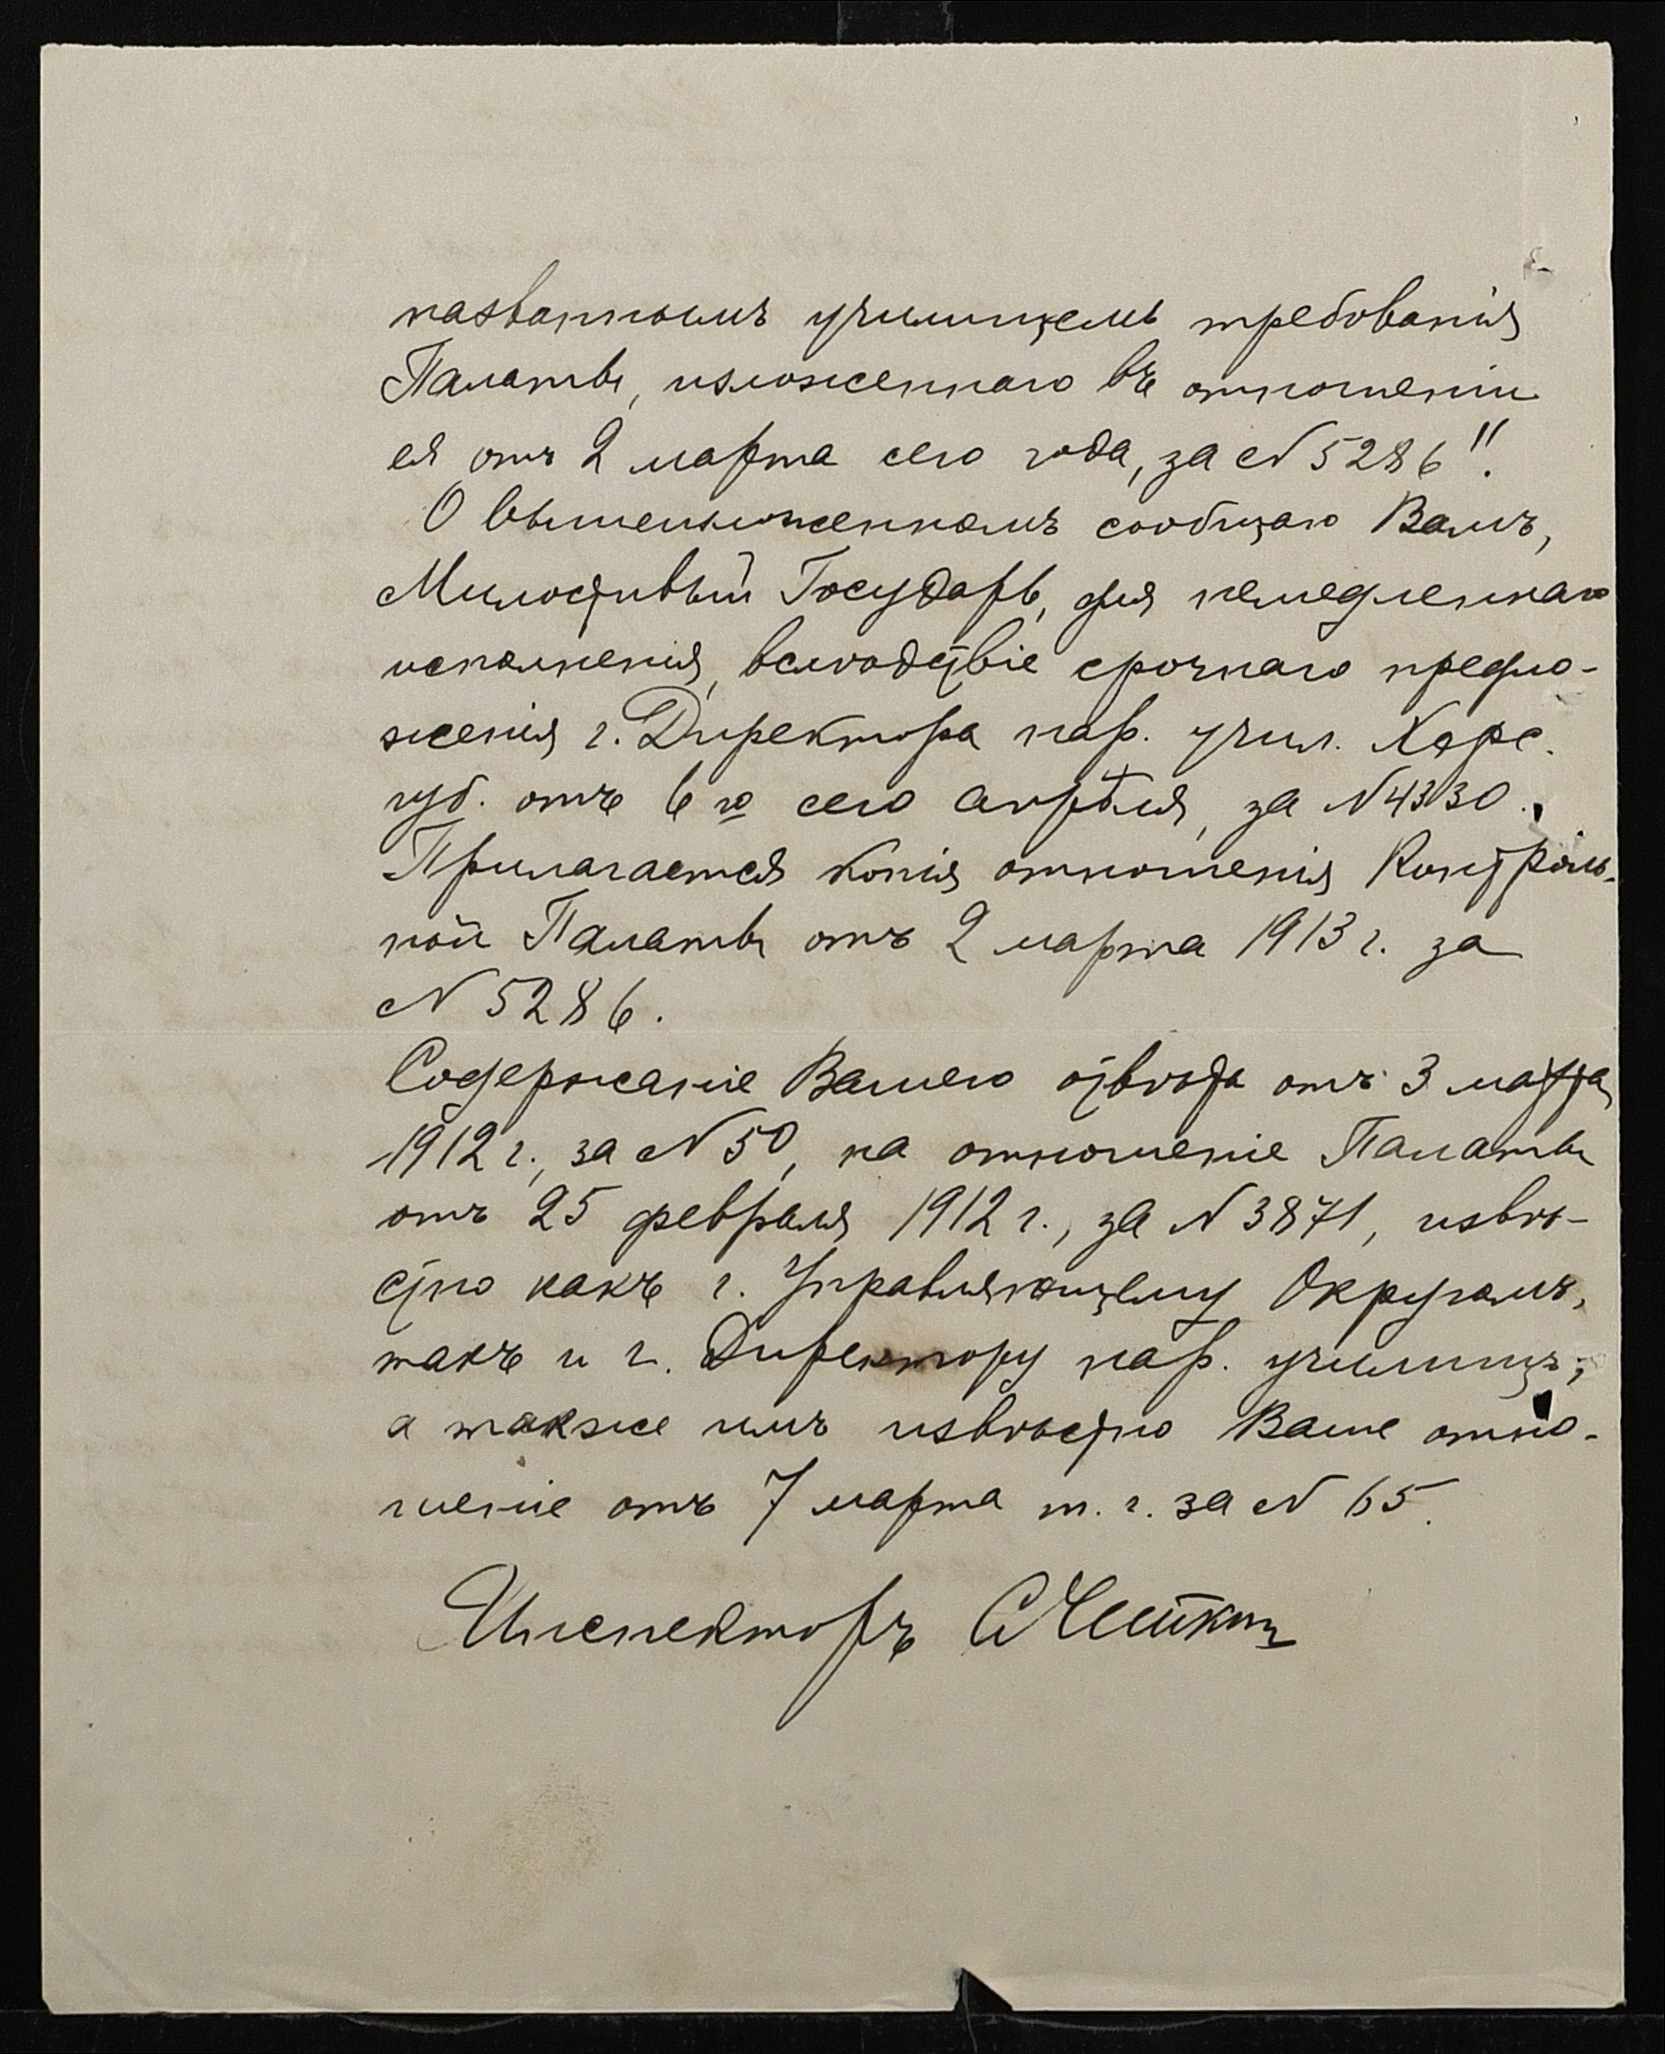 названнымъ училищемъ требованія
Палаты, изложеннаго въ отношеніи
ея отъ 2 марта сего года, за N 5286".
О вышеизложенномъ сообщаю Вамъ,
Милостивый Государь, для немедленнаго
исполненія, вслѣдствіе срочнаго предло-
женія г. Директора нар. учил. Херс.
губ. отъ 6го сего апрѣля, за N 4330.
Прилагается копія отношенія Контроль-
ной Палаты отъ 2 марта 1913 г. за
N 5286.
Содержаніе Вашего отвѣта отъ 3 марта
1912 г., за N 50, на отношеніе Палаты
отъ 25 февраля 1912 г., за N 3871, извѣ-
стно какъ г. Управляющему Округомъ,
такъ и г. Директору нар. училищъ,
а также имъ извѣстно Ваше отно-
шеніе отъ 7 марта т. г. за N 65.
Инспекторъ